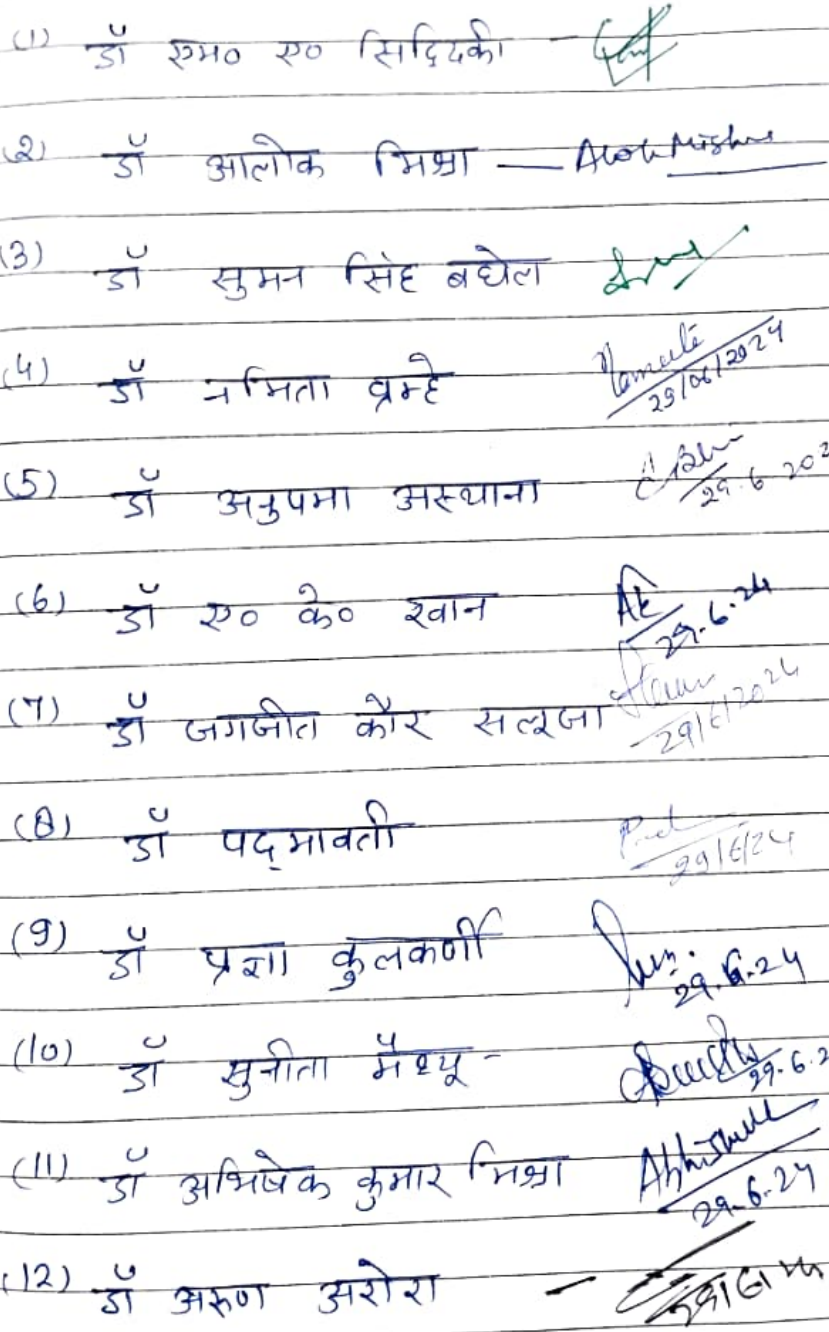 (1) डॉ एम० ए० सिद्दिदकी -
(2) डॉ आलोक मिश्रा — Alok Mishra
(3) डॉ सुमन सिंह बघेल
(4) डॉ नमिता ब्रम्हे Namrata 29/06/2024
(5) डॉ अनुपमा अस्थाना 29.6 202
(6) डॉ ए० के० खान AK 29.6.24
(7) डॉ जगजीत कौर सलूजा 29/6/2024
(8) डॉ पद्मावती 29/6/24
(9) डॉ प्रज्ञा कुलकर्णी 29.6.24
(10) डॉ सुनीता मैथ्यू - 29.6.2
(11) डॉ अभिषेक कुमार मिश्रा Abhishek 29.6.24
(12) डॉ अरुण अरोरा -